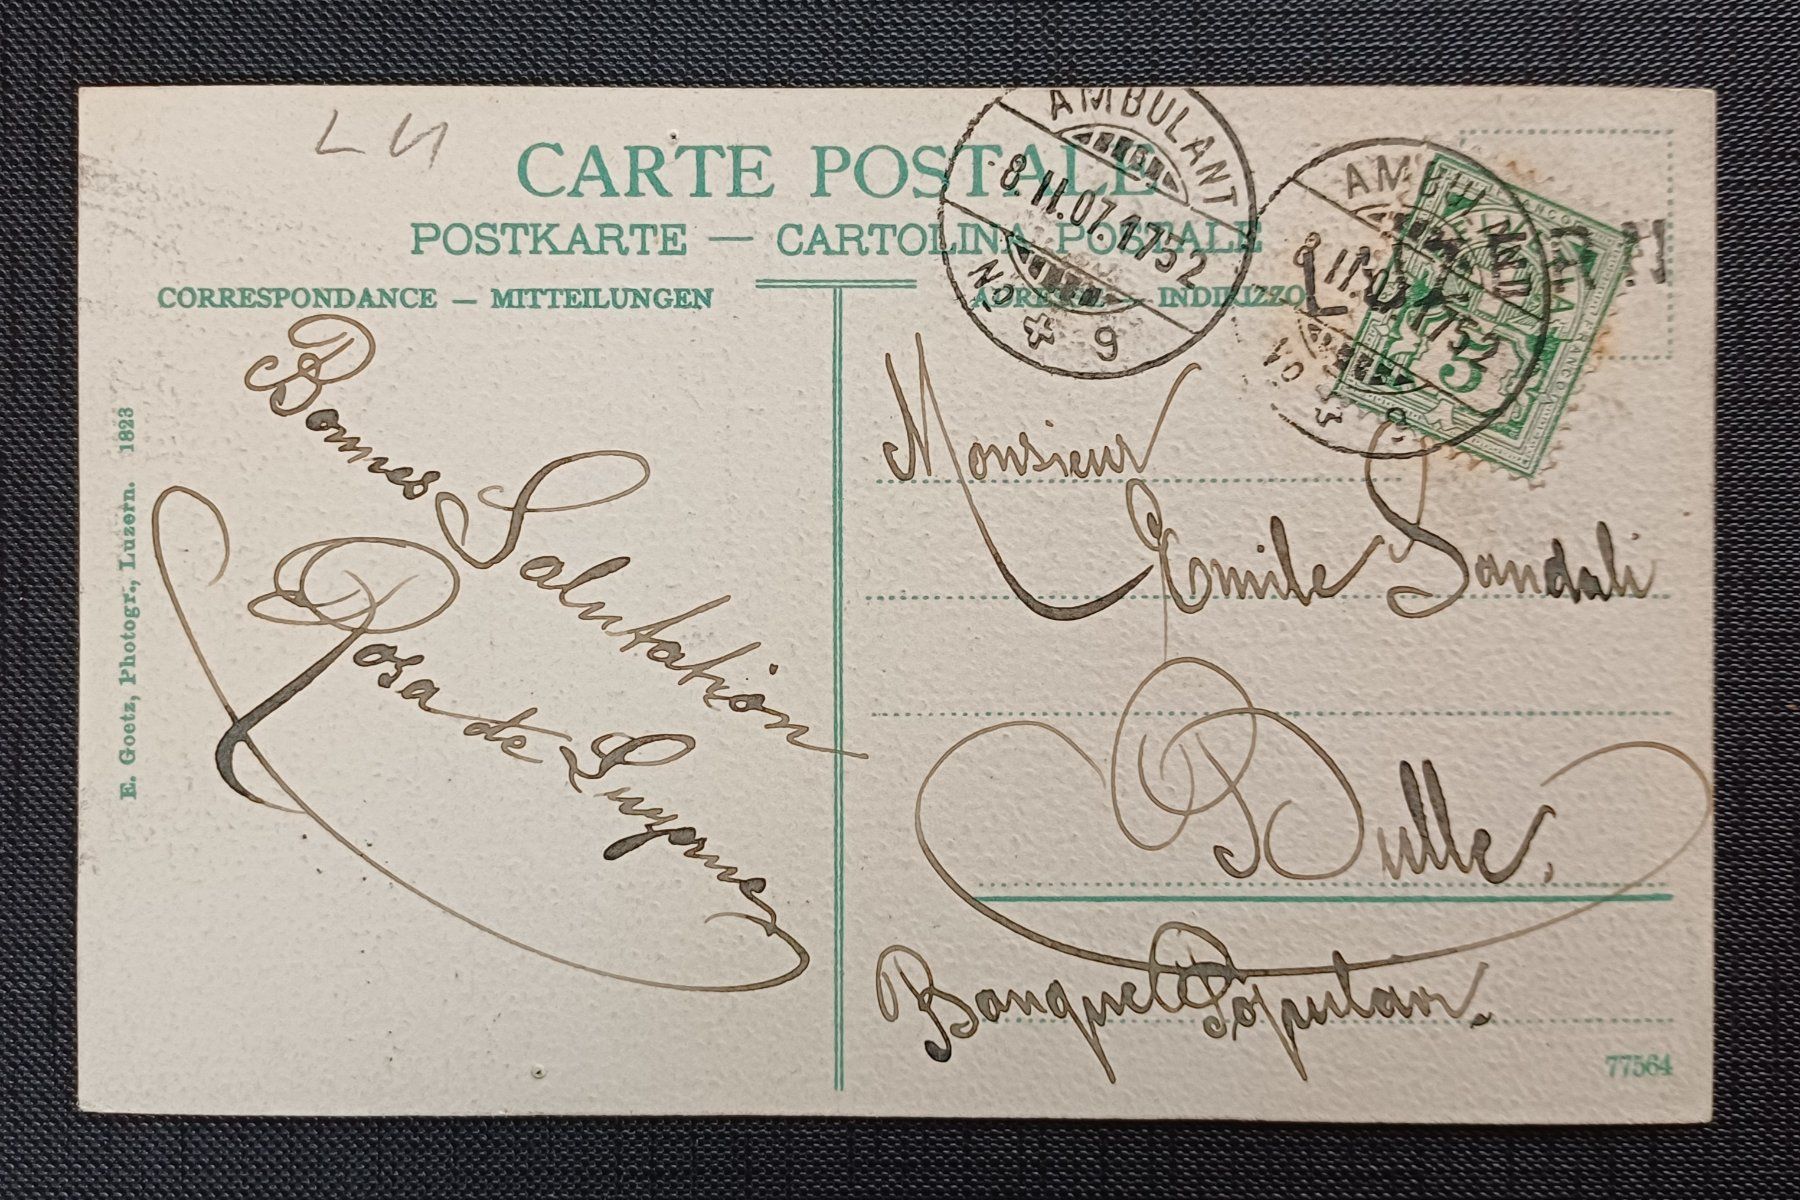 LU
CARTE POSTALE
POSTKARTE — CARTOLINA POSTALE
CORRESPONDANCE — MITTEILUNGEN
INDIRIZZO
AMBULANT
8.II.07.1752
No. 9
AMBULANT
8.II.07.1752
No. 9
LUZERN
FRANCO
5
Bonnes Salutation
Rosa de Luzerne
Monsieur
Emile
Bulle.
Banque Populair.
E. Goetz, Photogr., Luzern. 1823
77564